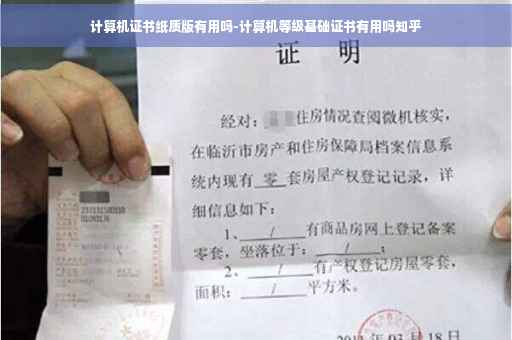 计算机证书纸质版有用吗-计算机等级基础证书有用吗知乎
证 明
经对: 住房情况查阅微机核实,
在临沂市房产和住房保障局档案信息系
统内现有 零 套房屋产权登记记录,详
细信息如下:
1、 / 有商品房网上登记备案
零套,坐落位于: / ;
2、 / 有产权登记房屋零套,
面积: / 平方米。
03月18日